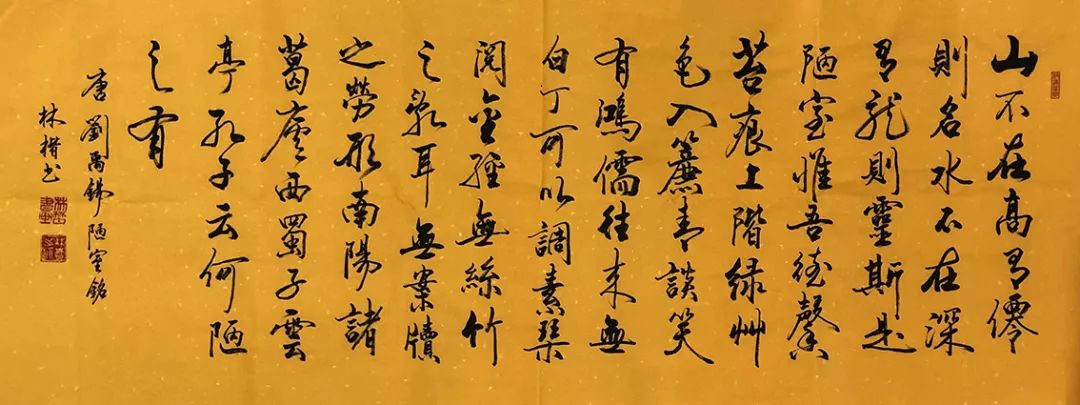 山不在高有僊
則名水不在深
有龍則靈斯是
陋室惟吾德馨
苔痕上階緑艸
色入簾青談笑
有鴻儒往来無
白丁可以調素琴
閱金經無絲竹
之亂耳無案牘
之勞形南陽諸
葛廬西蜀子雲
亭孔子云何陋
之有
唐劉禹錫陋室銘
林楷书